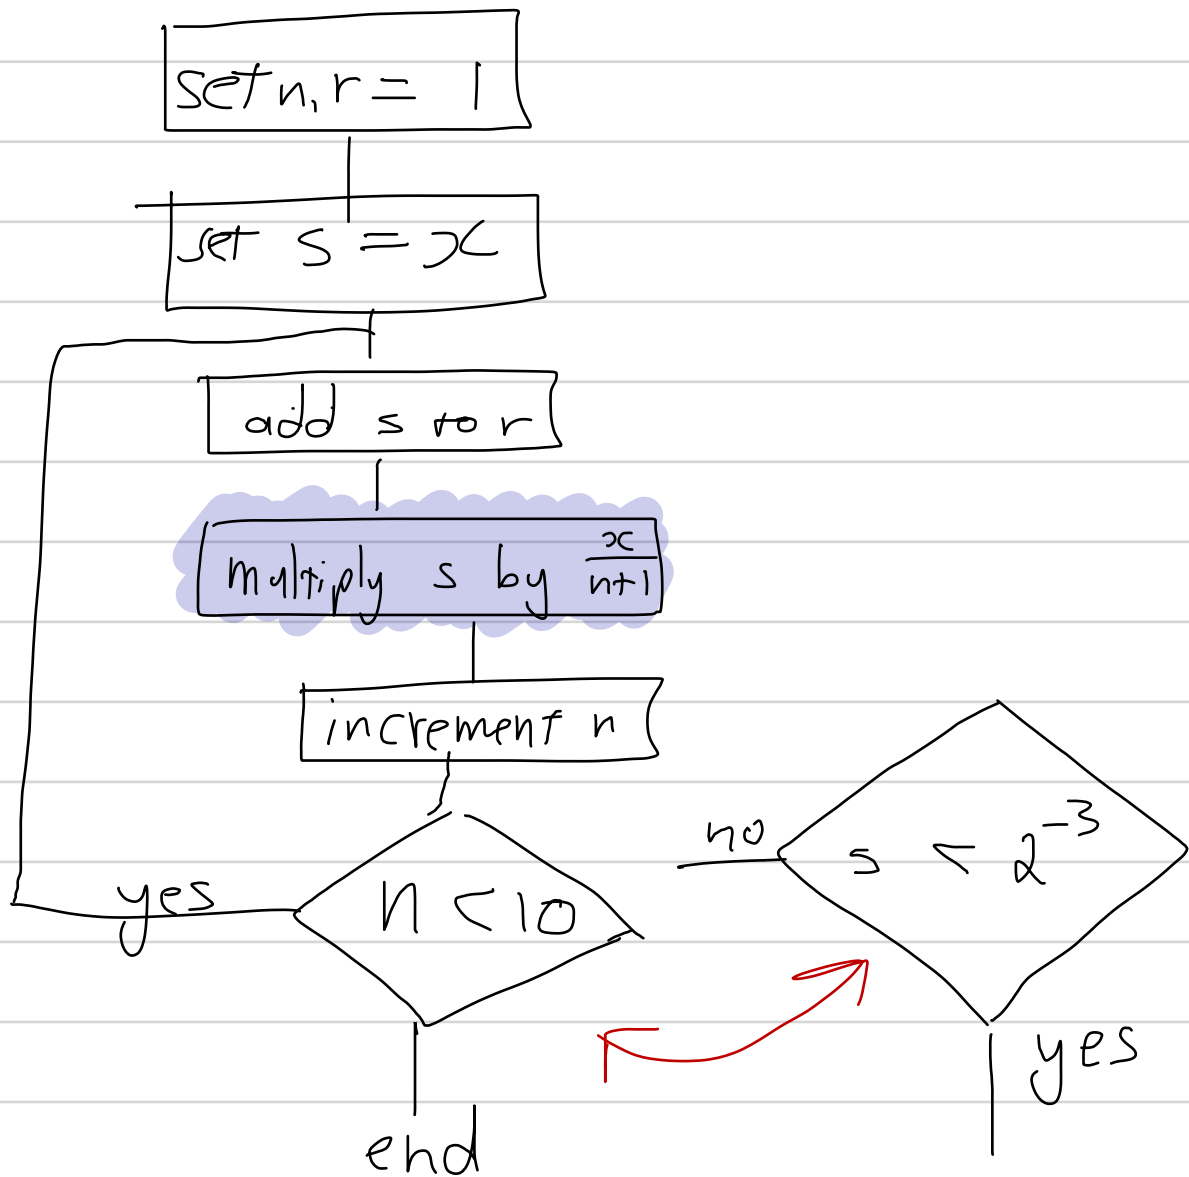 set n, r = 1
set s = x
add s to r
multiply s by x/(n+1)
increment n
n < 10
yes
end
no
s < 2^-3
yes